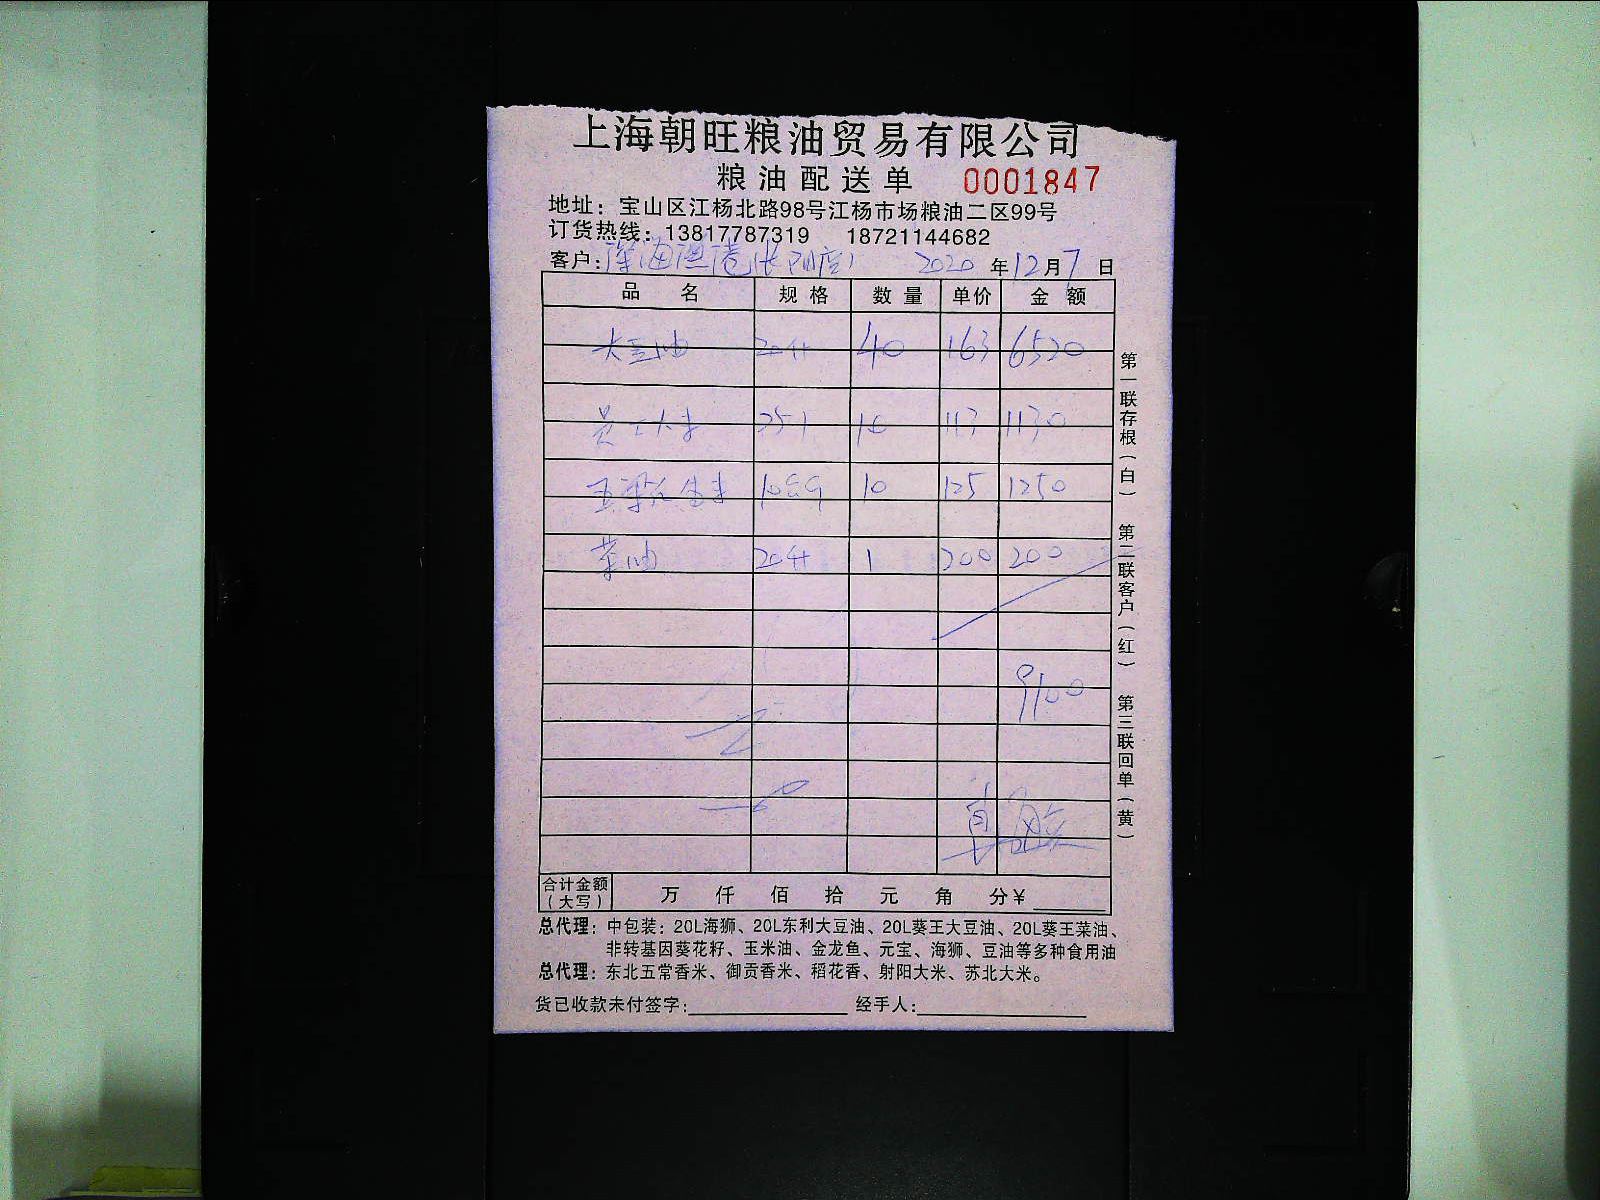 上海朝旺粮油贸易有限公司
粮油配送单 0001847
地址：宝山区江杨北路98号江杨市场粮油二区99号
订货热线：13817787319 18721144682
客户：深海渔港(长阳店) 2020 年 12 月 7 日
品名 规格 数量 单价 金额
大豆油 20升 40 163 6520
员工大米 25 10 113 1130
10KG 10 125 1250
菜油 20升 1 200 200
9100
合计金额(大写) 万 仟 佰 拾 元 角 分￥
总代理：中包装：20L海狮、20L东利大豆油、20L葵王大豆油、20L葵王菜油、
非转基因葵花籽、玉米油、金龙鱼、元宝、海狮、豆油等多种食用油
总代理：东北五常香米、御贡香米、稻花香、射阳大米、苏北大米。
货已收款未付签字： 经手人：
第一联存根(白) 第二联客户(红) 第三联回单(黄)